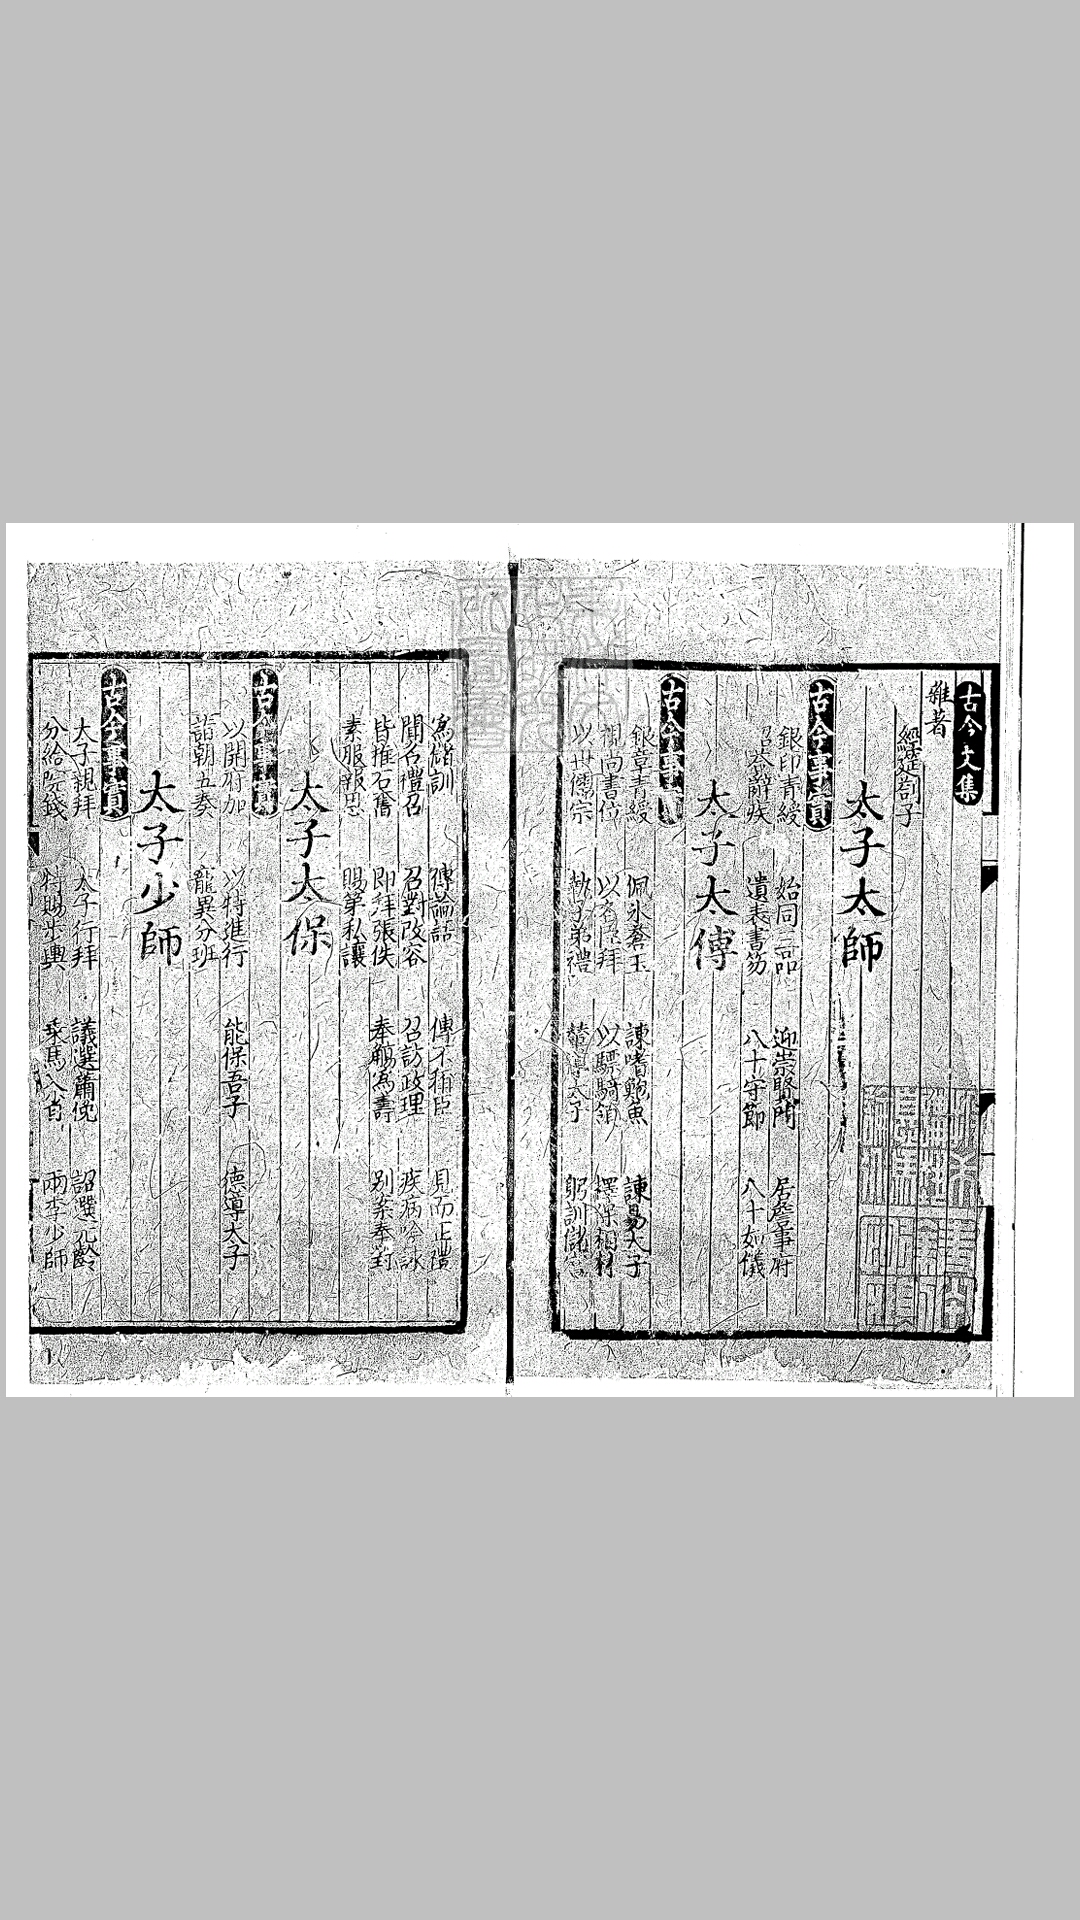 古今文集
雜著
經筵劄子
太子太師
古今事實
銀印青綬 始同二品 迎崇賢門 居詹事府
召爲辭疾 遺表書笏 八十守節 八十如儀
太子太傅
古今事實
銀章青綬 佩水蒼玉 諫嗜鮑魚 諫易太子
視尚書位 以 拜 以驃騎領 擇保相材
以世儒宗 執子弟禮 輔導太子 躬訓儲宮
爲儲訓 傅論語 傅不稱臣 見而正禮
聞名禮召 召對改容 召訪政理 疾病吟詠
皆推石奮 即拜張佚 奉觴爲壽 別案奉封
素服報忌 賜第私讓
太子太保
古今事實
以開府加 以特進行 能保吾子 德導太子
詣朝五奏 寵異分班
太子少師
古今事實
太子親拜 太子行拜 議選蕭俛 詔選元齡
分給院錢 特賜步輿 乘馬入省 兩李少師